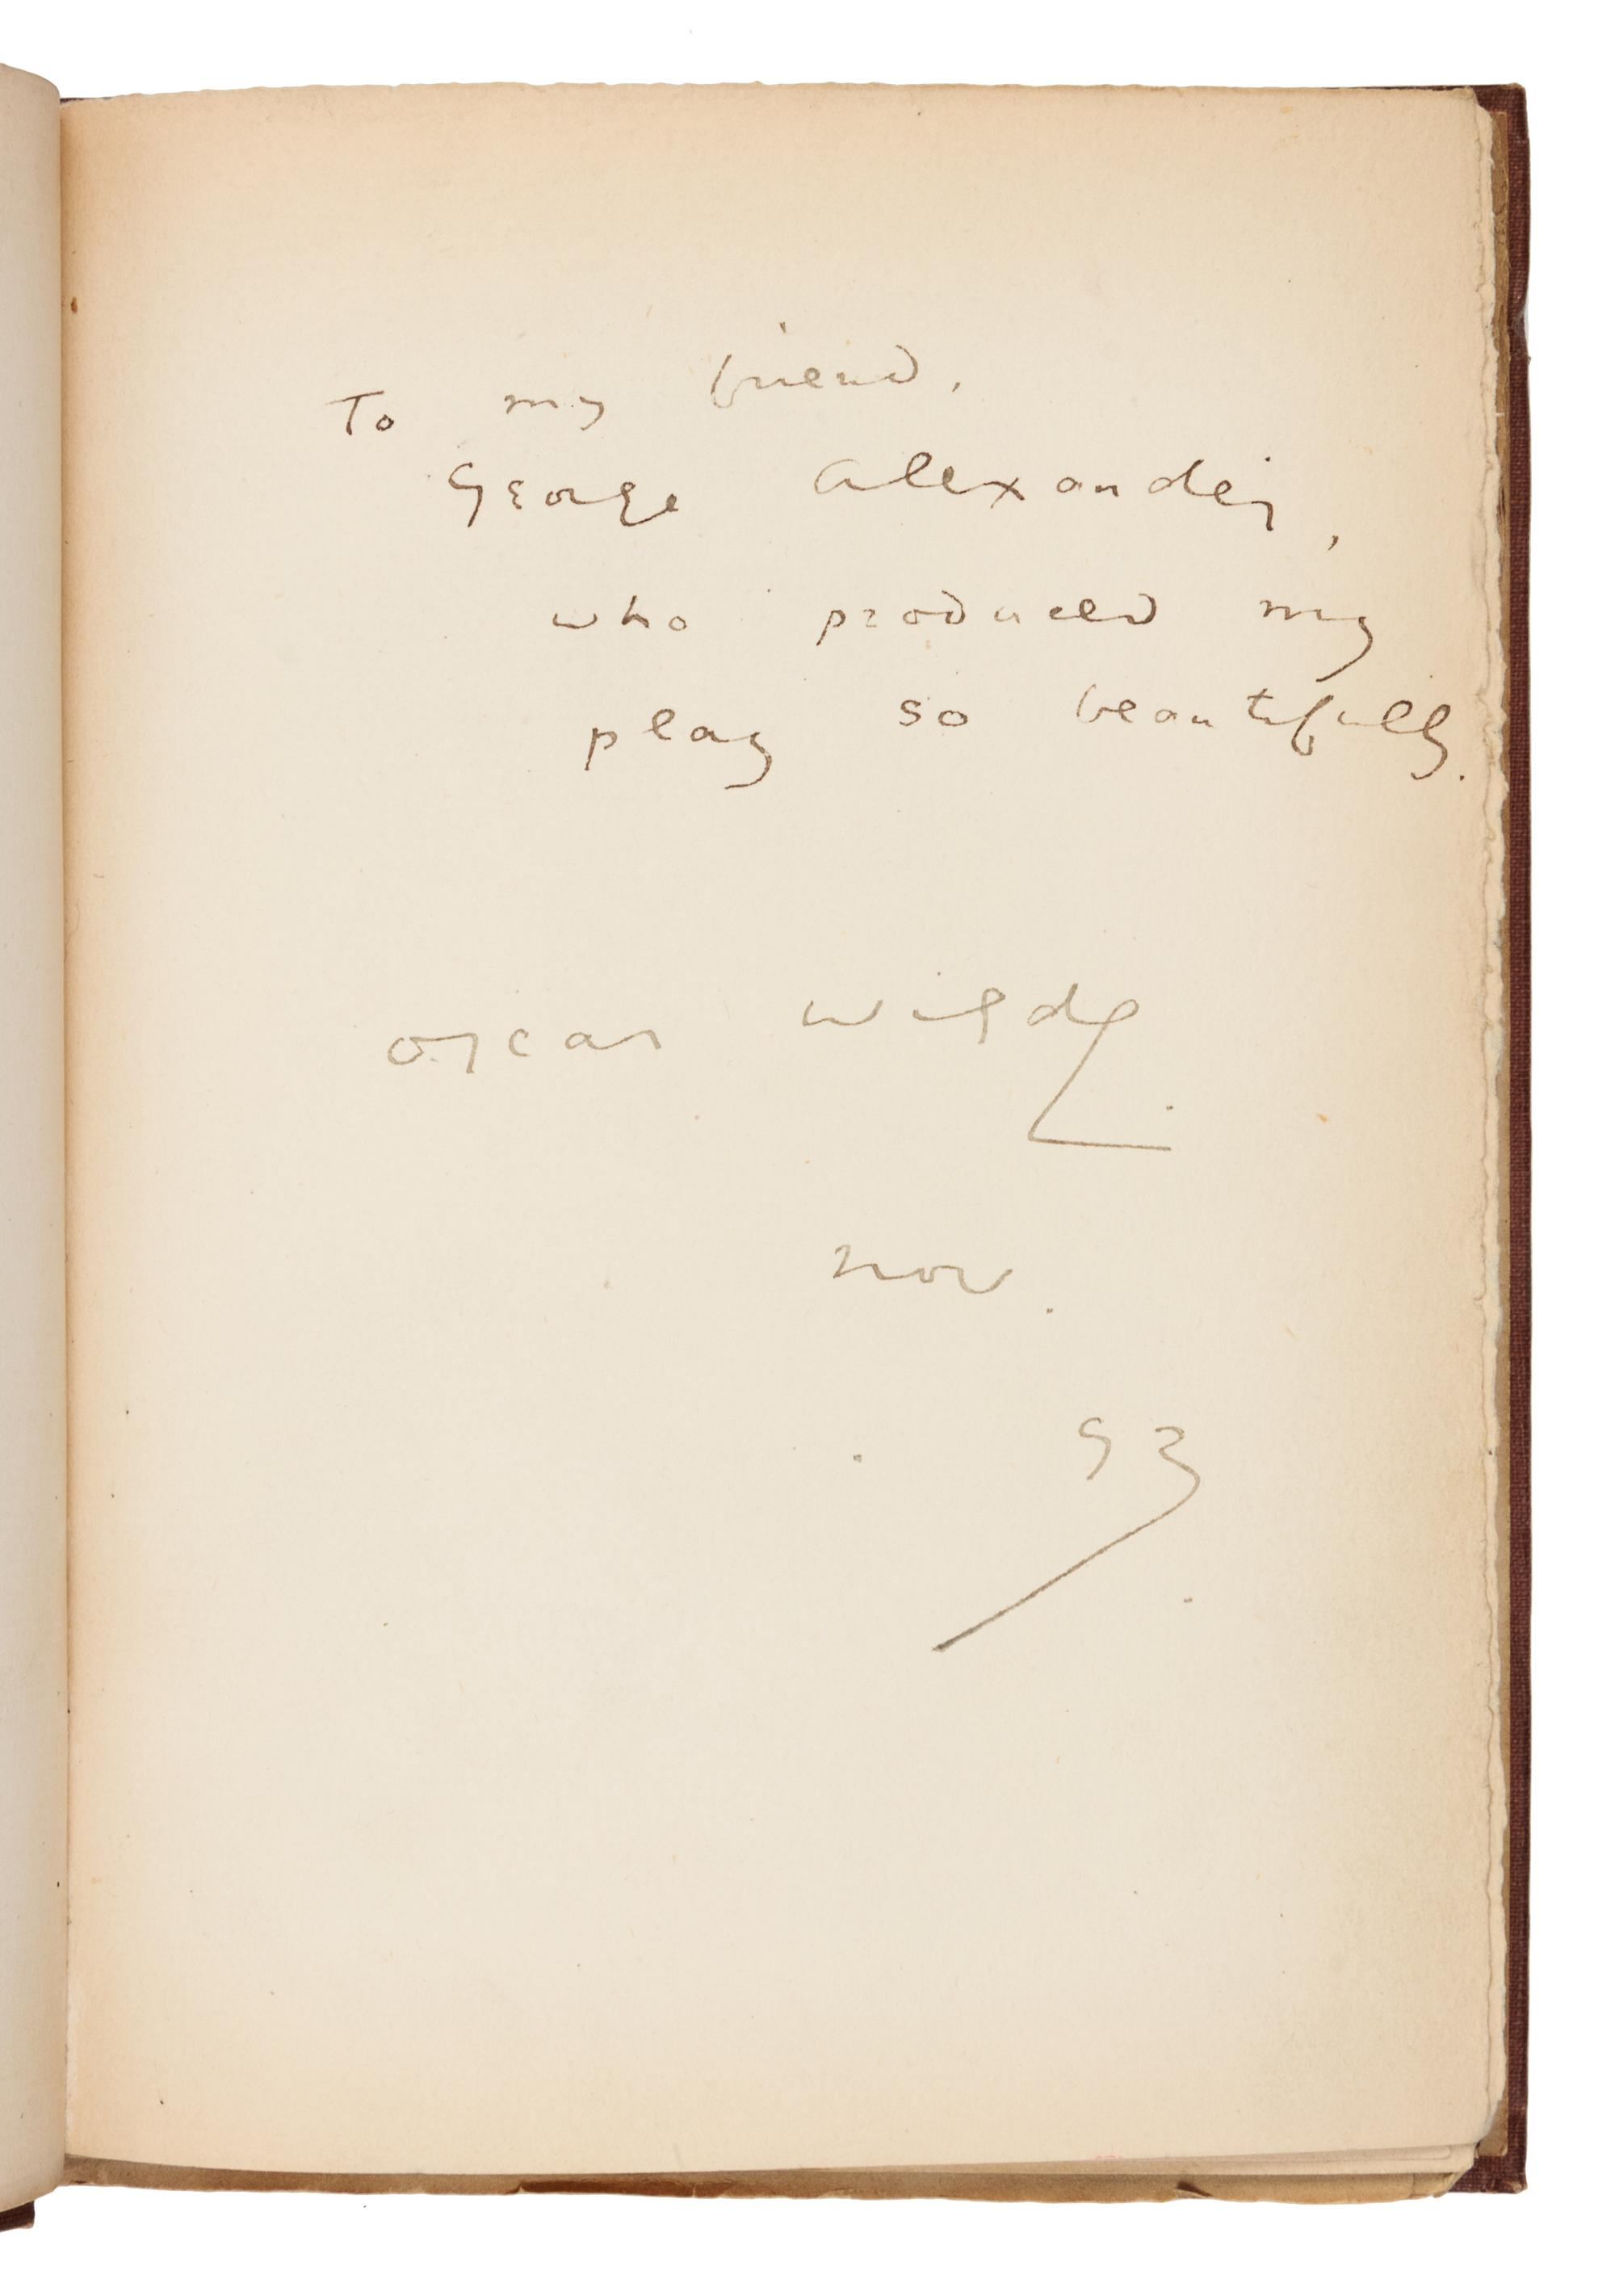 To my friend,
George Alexander,
who produced my
play so beautifully.
Oscar Wilde
Nov.
93